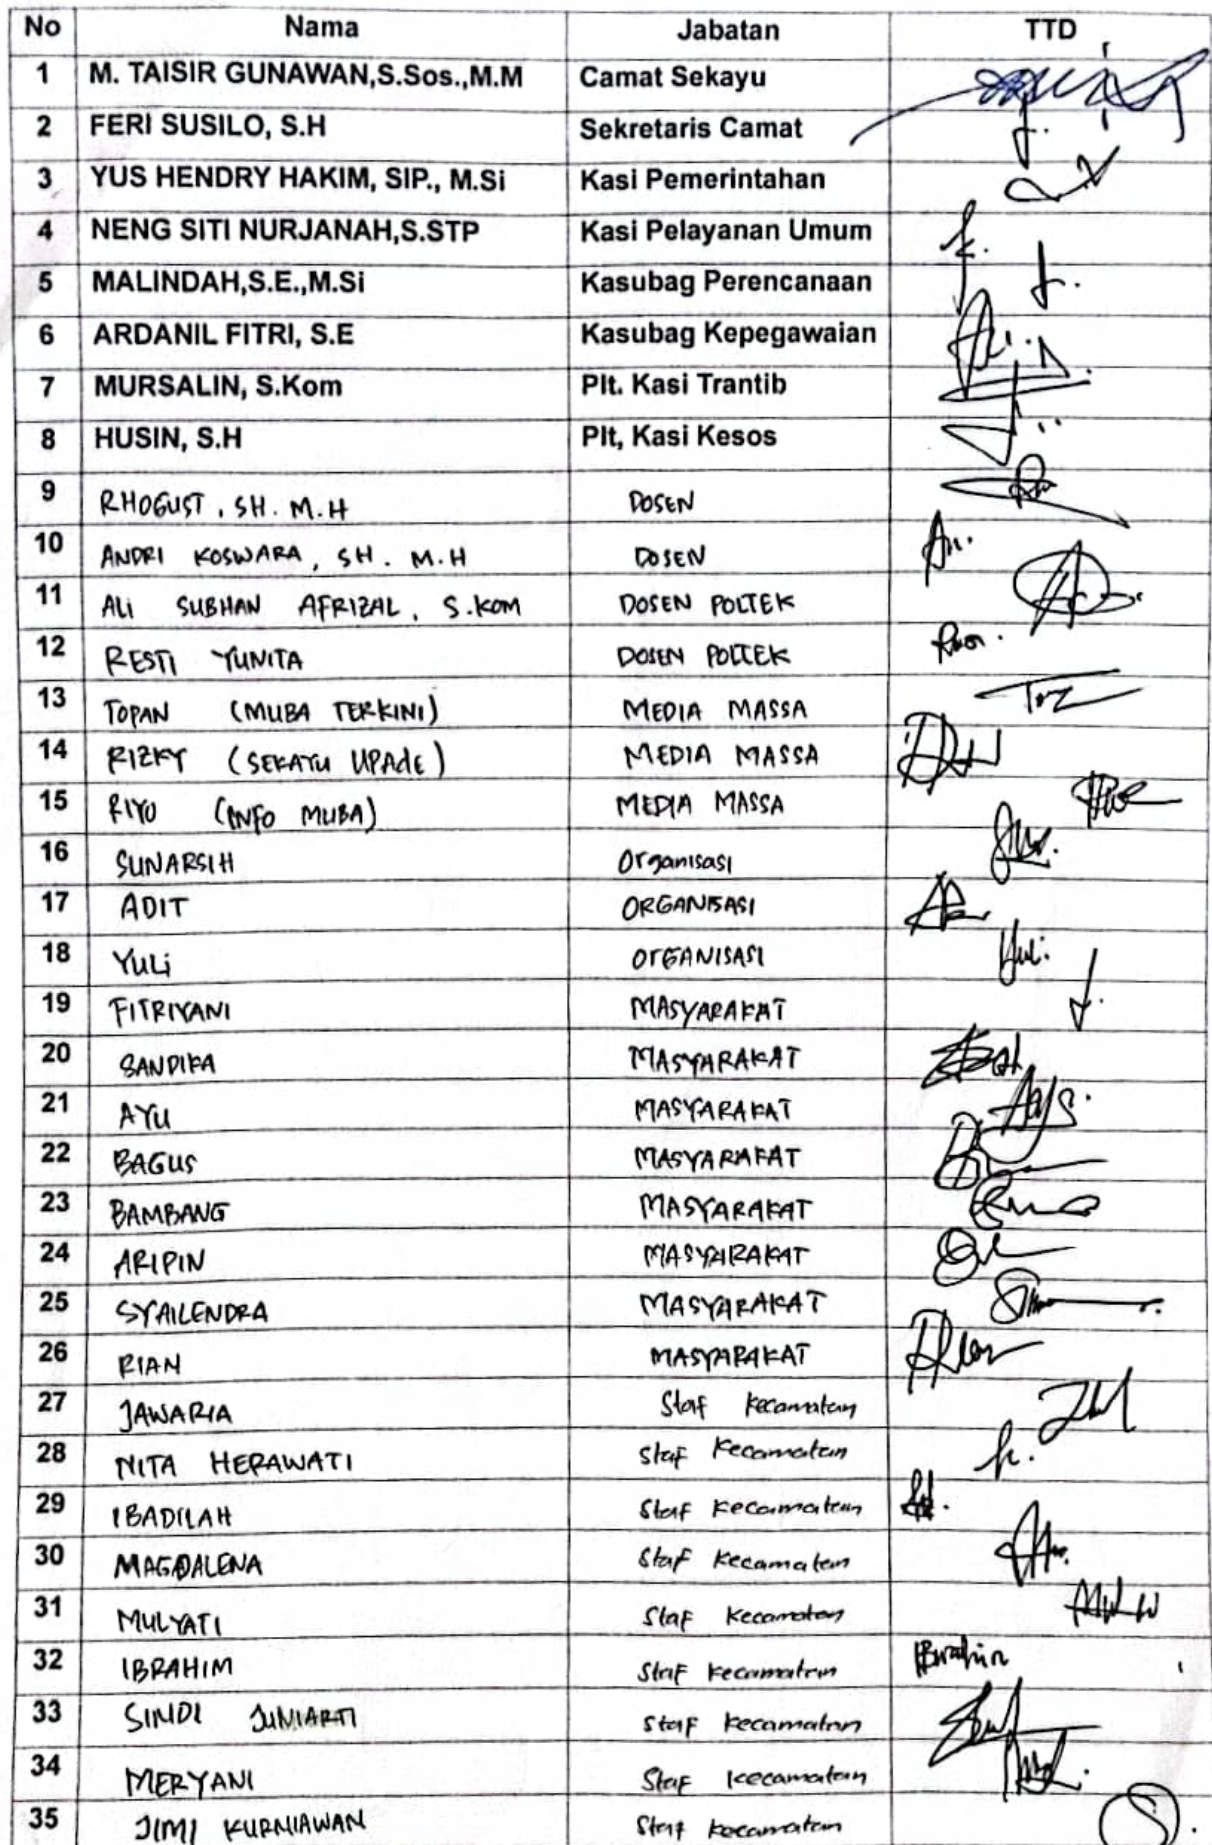 No Nama Jabatan TTD
1 M. TAISIR GUNAWAN,S.Sos.,M.M Camat Sekayu
2 FERI SUSILO, S.H Sekretaris Camat
3 YUS HENDRY HAKIM, SIP., M.Si Kasi Pemerintahan
4 NENG SITI NURJANAH,S.STP Kasi Pelayanan Umum
5 MALINDAH,S.E.,M.Si Kasubag Perencanaan
6 ARDANIL FITRI, S.E Kasubag Kepegawaian
7 MURSALIN, S.Kom Plt. Kasi Trantib
8 HUSIN, S.H Plt, Kasi Kesos
9 RHOGUST, SH. M.H DOSEN
10 ANDRI KOSWARA, SH. M.H DOSEN
11 ALI SUBHAN AFRIZAL, S.KOM DOSEN POLTEK
12 RESTI YUNITA DOSEN POLTEK
13 TOPAN (MUBA TERKINI) MEDIA MASSA
14 RIZKY (SEKAYU UPAdE) MEDIA MASSA
15 RIYO (INFO MUBA) MEDIA MASSA
16 SUNARSIH Organisasi
17 ADIT ORGANISASI
18 YULi ORGANISASI Yuli.
19 FITRIYANI MASYARAKAT
20 SANDIKA MASYARAKAT
21 AYU MASYARAKAT
22 BAGUS MASYARAKAT
23 BAMBANG MASYARAKAT
24 ARIPIN MASYARAKAT
25 SYAILENDRA MASYARAKAT
26 RIAN MASYARAKAT
27 JAWARIA Staf Kecamatan
28 NITA HERAWATI Staf Kecamatan
29 IBADILAH Staf Kecamatan
30 MAGDALENA Staf Kecamatan
31 MULYATI Staf Kecamatan
32 IBRAHIM Staf Kecamatan Ibrahim
33 SINDI JUNIARTI Staf Kecamatan
34 MERYANI Staf Kecamatan
35 JIMI KURNIAWAN Staf Kecamatan